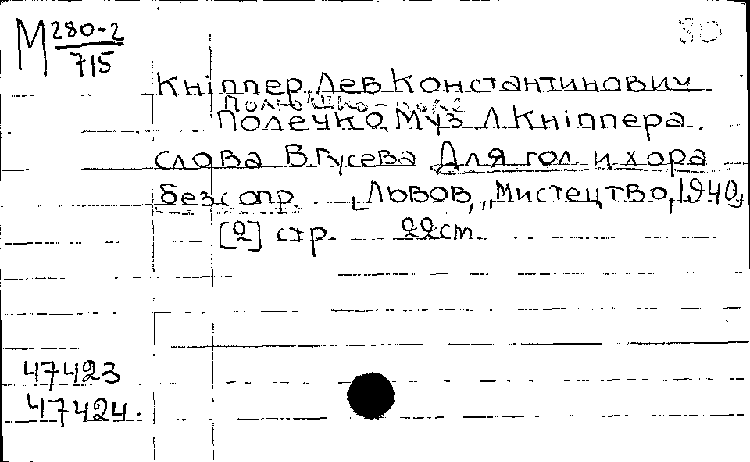 М 280-2
715
80
Кніппер, Лев Константинович
Полюшко-поле
Полечко. Муз Л. Кніппера.
слова В. Гусева Для гол. и хора
без сопр. Львов, "Мистецтво", 1940,
[2] стр. 22 cm.
47423
47424.